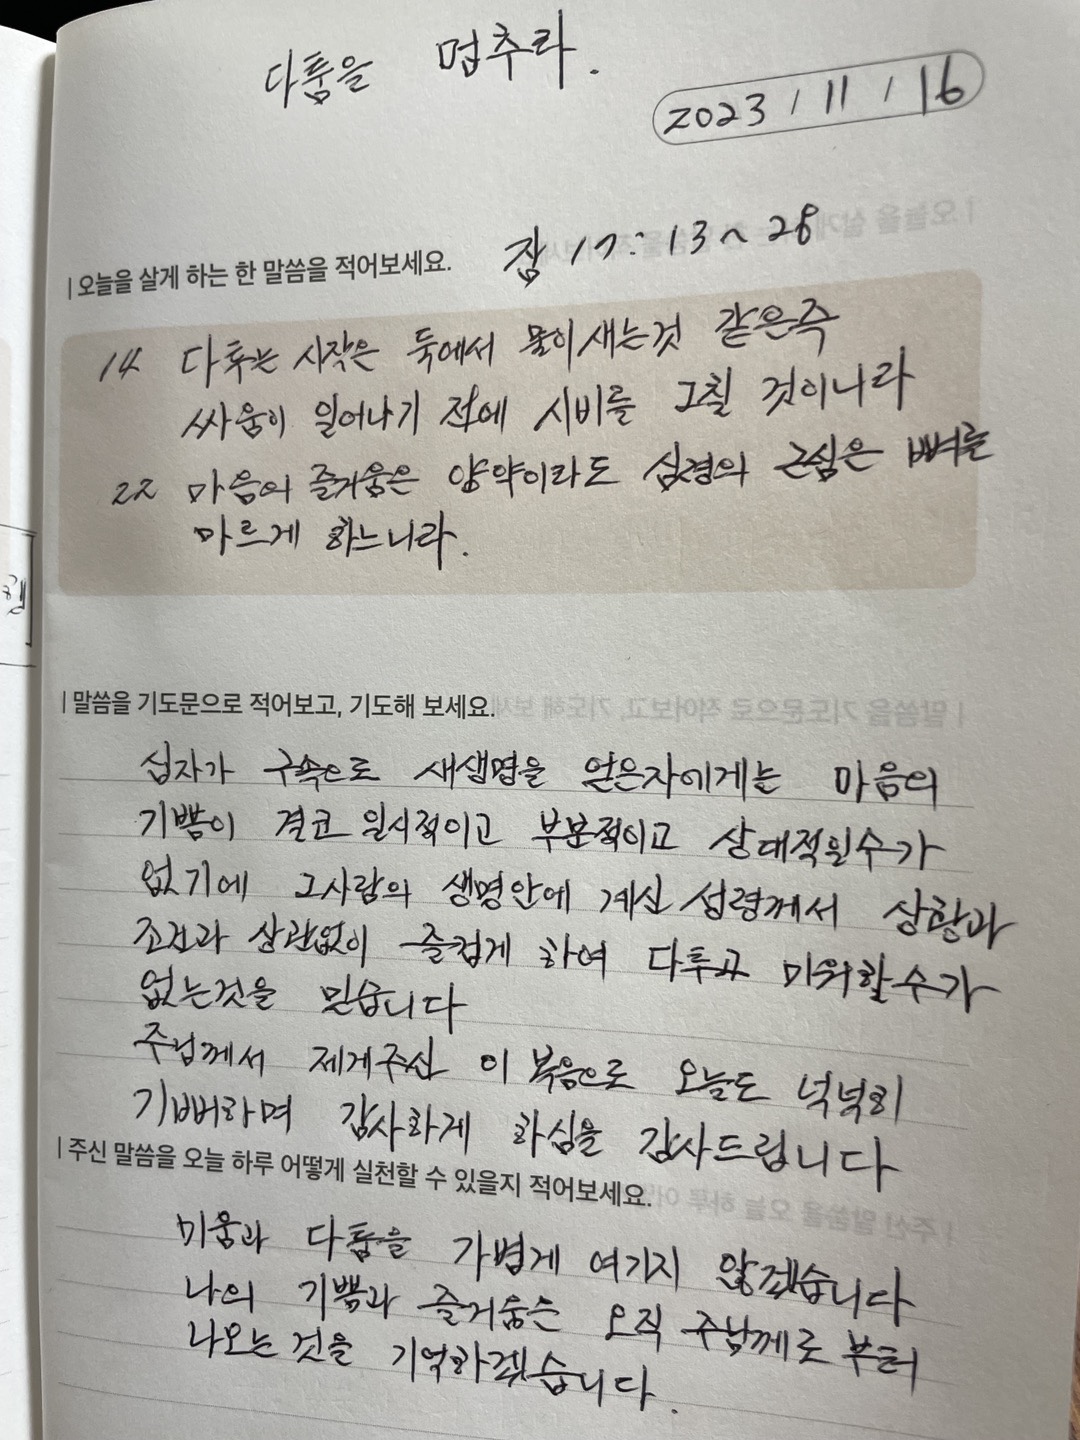 다툼을 멈추라.
2023 / 11 / 16
잠 17:13~28
| 오늘을 살게 하는 한 말씀을 적어보세요.
14 다투는 시작은 둑에서 물이새는것 같은즉
싸움이 일어나기 전에 시비를 그칠 것이니라
22 마음의 즐거움은 양약이라도 심령의 근심은 뼈를
마르게 하느니라.
| 말씀을 기도문으로 적어보고, 기도해 보세요.
십자가 구속으로 새생명을 얻은자에게는 마음의
기쁨이 결코 일시적이고 부분적이고 상대적일수가
없기에 그사람의 생명안에 계신 성령께서 상황과
조건과 상관없이 즐겁게 하여 다투고 미워할수가
없는것을 믿습니다
주님께서 제게주신 이 복음으로 오늘도 넉넉히
기뻐하며 감사하게 하심을 감사드립니다
| 주신 말씀을 오늘 하루 어떻게 실천할 수 있을지 적어보세요.
미움과 다툼을 가볍게 여기지 않겠습니다
나의 기쁨과 즐거움은 오직 주님께로 부터
나오는 것을 기억하겠습니다.